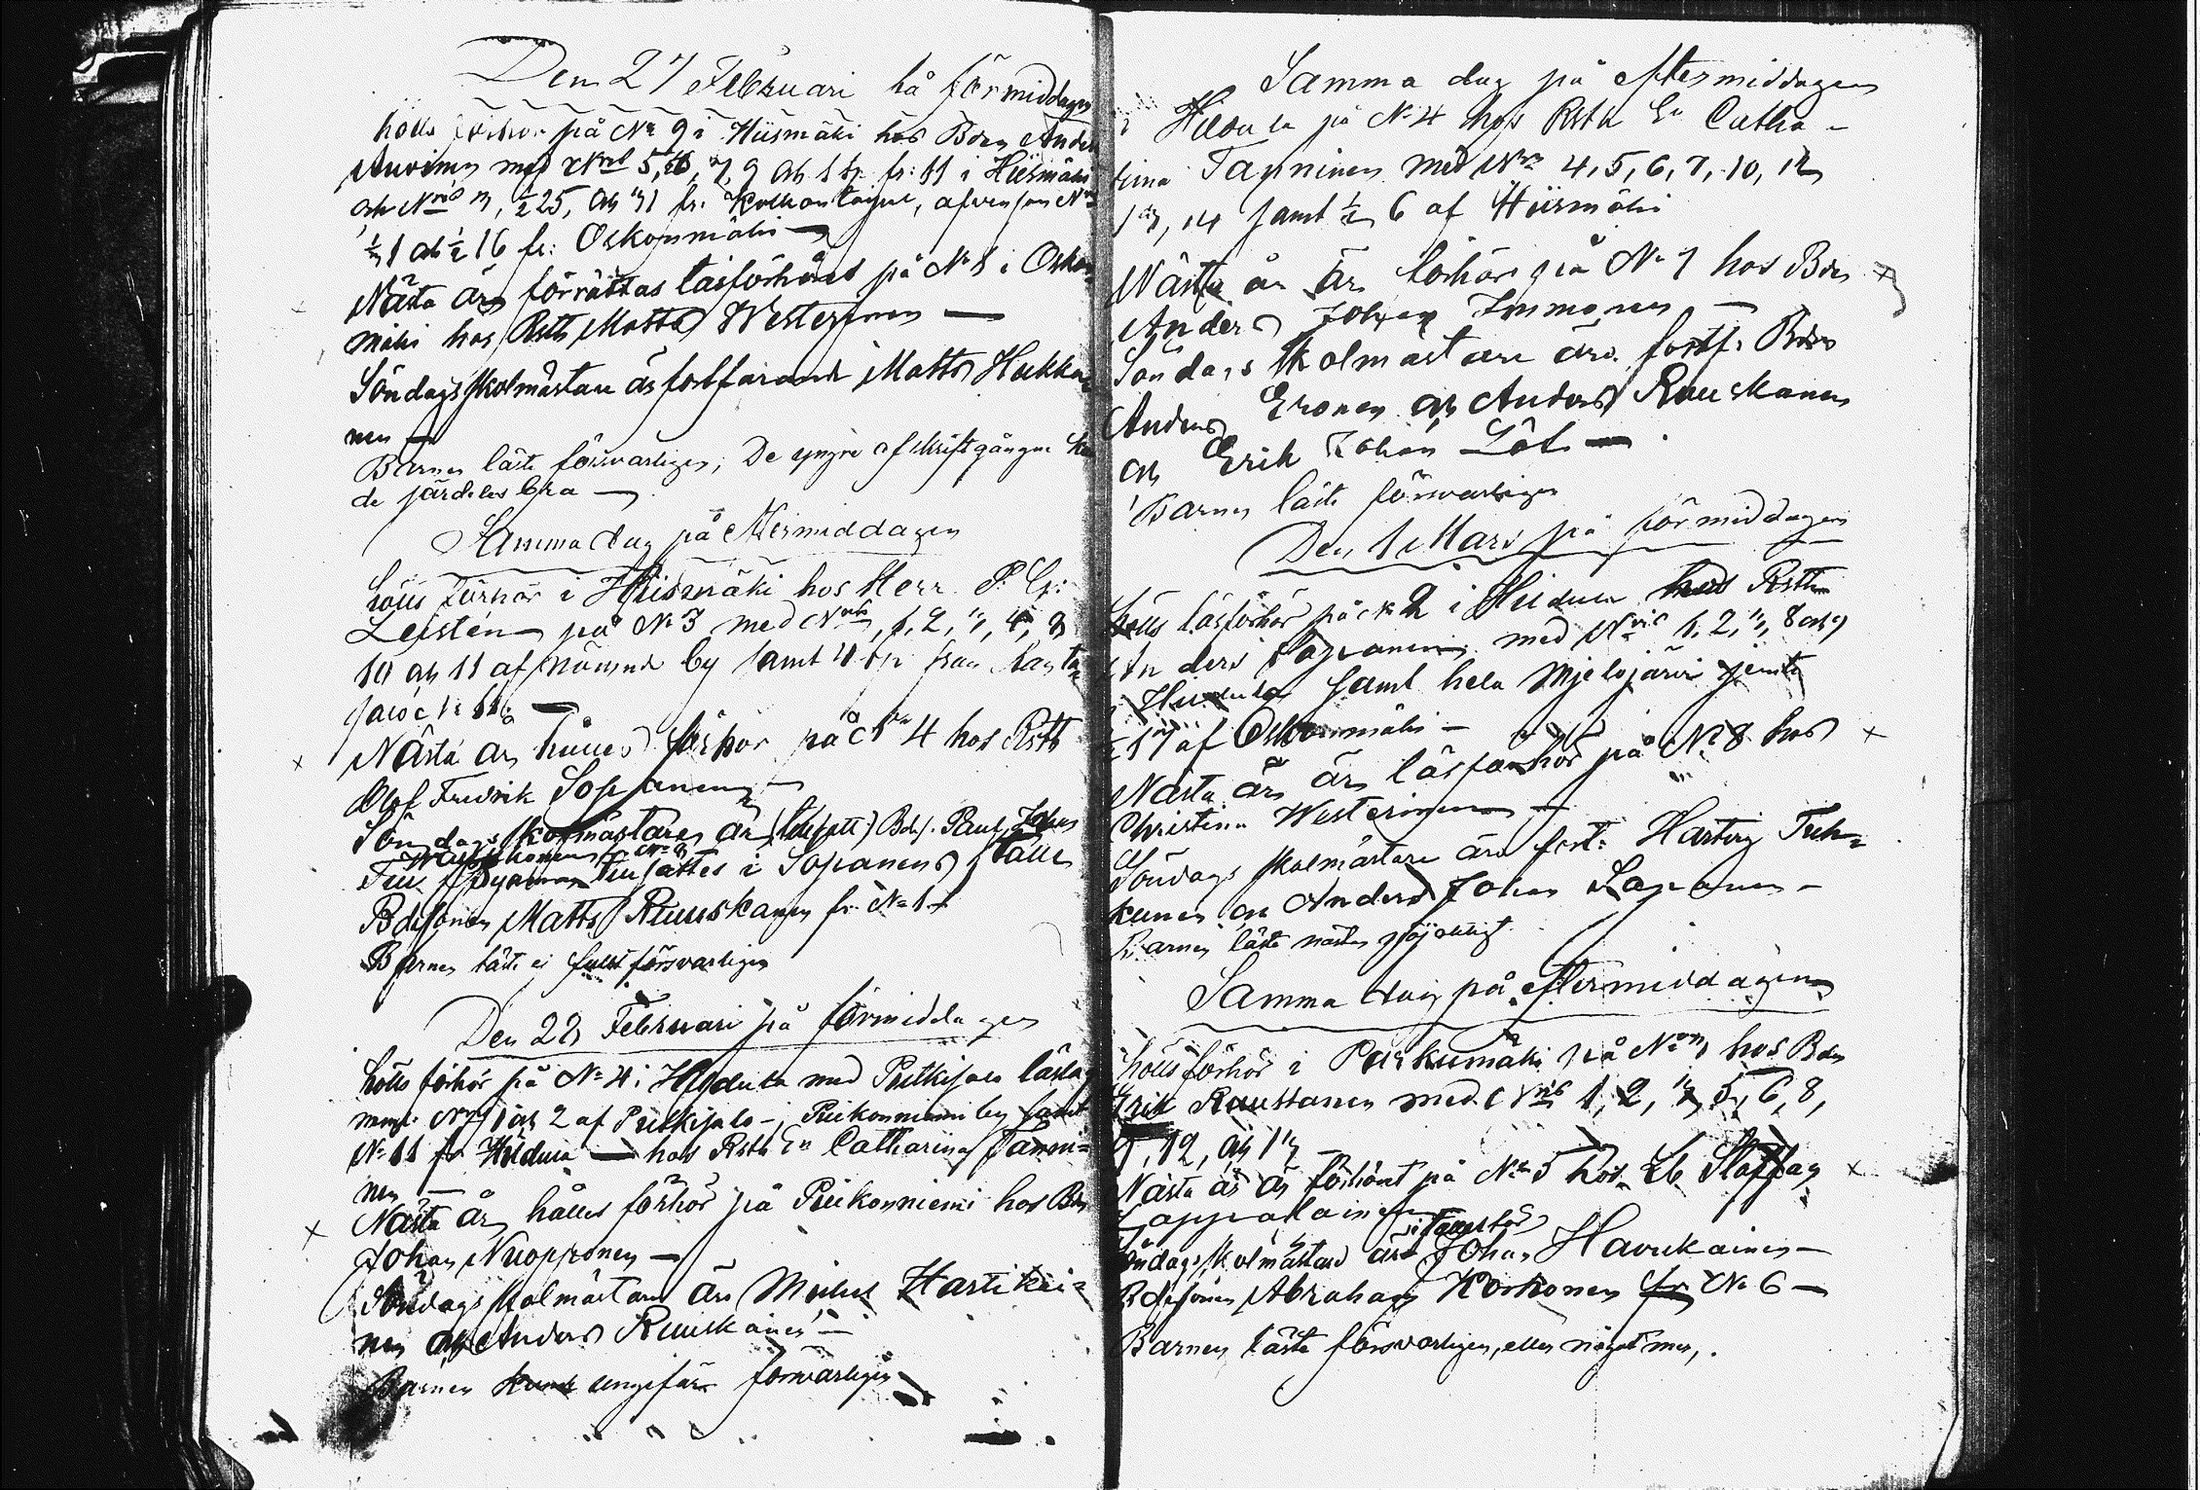 Den 27 Februari på förmiddagen
hölls förhör på No 9 i Hiismäki hos Bden Anders
Auvinen med Nris 5, 6, 7, 9 och fr: 11 i Hiismäki
och Nris 3, ½ 25, och 31 fr.
½ 1 och ½ 16 fr: Oskonmäki —
Nästa år förrättas läsförhöret på No 1 i Oskon-
mäki hos Rsth Matts Westerinen —
Söndagsskolmästare är fortfarande Matts Hakka-
nen —
Barnen läste försvarligen, De yngre af skriftgångne
de särdeles bra —
Samma dag på Eftermiddagen
hölls förhör i Hiismäki hos Herr P. G:
Leistén på No 3 med Nris 1, 2, 3, 4, 8
10 och 11 af nämnde by samt
No 11: —
Nästa år hålles förhör på No 4 hos Rsth
Olof Fredrik Sopanen —
Söndagsskolmästaren är Bdes. Paul Johan
tillsattes i Sopanens ställe
Bdesonen Matts Ruuskanen fr: No 1 —
Barnen läste ej fullt försvarligen
Den 28 Februari på förmiddagen
hölls förhör på No 4 i Hiidula med Putkisalo läslag
neml. No 1 och 2 af Putkisalo —, Piikonniemi by samt
No 11 fr Hiidula — hos Rsth En Catharina Tanni-
nen —
Nästa år hålles förhör på Piikonniemi hos Bden
Johan Nuopponen —
Söndagsskolmästare äro Michel Hartikai-
nen och Anders Ruuskainen —
Barnen kunde ungefär försvarligen
Samma dag på eftermiddagen
i Hiidula på No 4 hos Rsth En Catha-
rina Tanninen med Nris 4, 5, 6, 7, 10, 12
13, 14 samt ½ 6 af Hiismäki
Nästa år är förhör på No 7 hos Bden
Anders Johan Immonen —
Söndagsskolmästare äro fortf: Bden
Anders Eronen och Anders Ruuskanen
och Erik Johan
Barnen läste försvarligen
Den 1 Mars på förmiddagen
hölls läsförhör på No 2 i Hiidula hos Rsth
Anders Sopanen med Nris 1, 2, 3, 8 och 9
i Hiidula samt hela Mjelojärvi jemte
½ 17 af Oskonmäki —
Nästa år är läsförhör på No 8 hos
Christina Westerinen —
Söndagsskolmästare äro fort: Hartvig Tuh-
kunen och Anders Johan Sopanen —
Barnen läste nästan nöjaktigt
Samma dag på eftermiddagen
hölls förhör i Purkumäki på No 3 hos Bden
Erik Raustanen med Nris 1, 2, 3, 5, 6, 8,
9, 12, och 13 —
Nästa år är förhöret på No 5 hos Lb Staffan
Lappalainen
Söndagsskolmästare äro Johan Havukainen —
Bdesonen Abraham Korhonen fr No 6 —
Barnen läste försvarligen, eller något mer,.